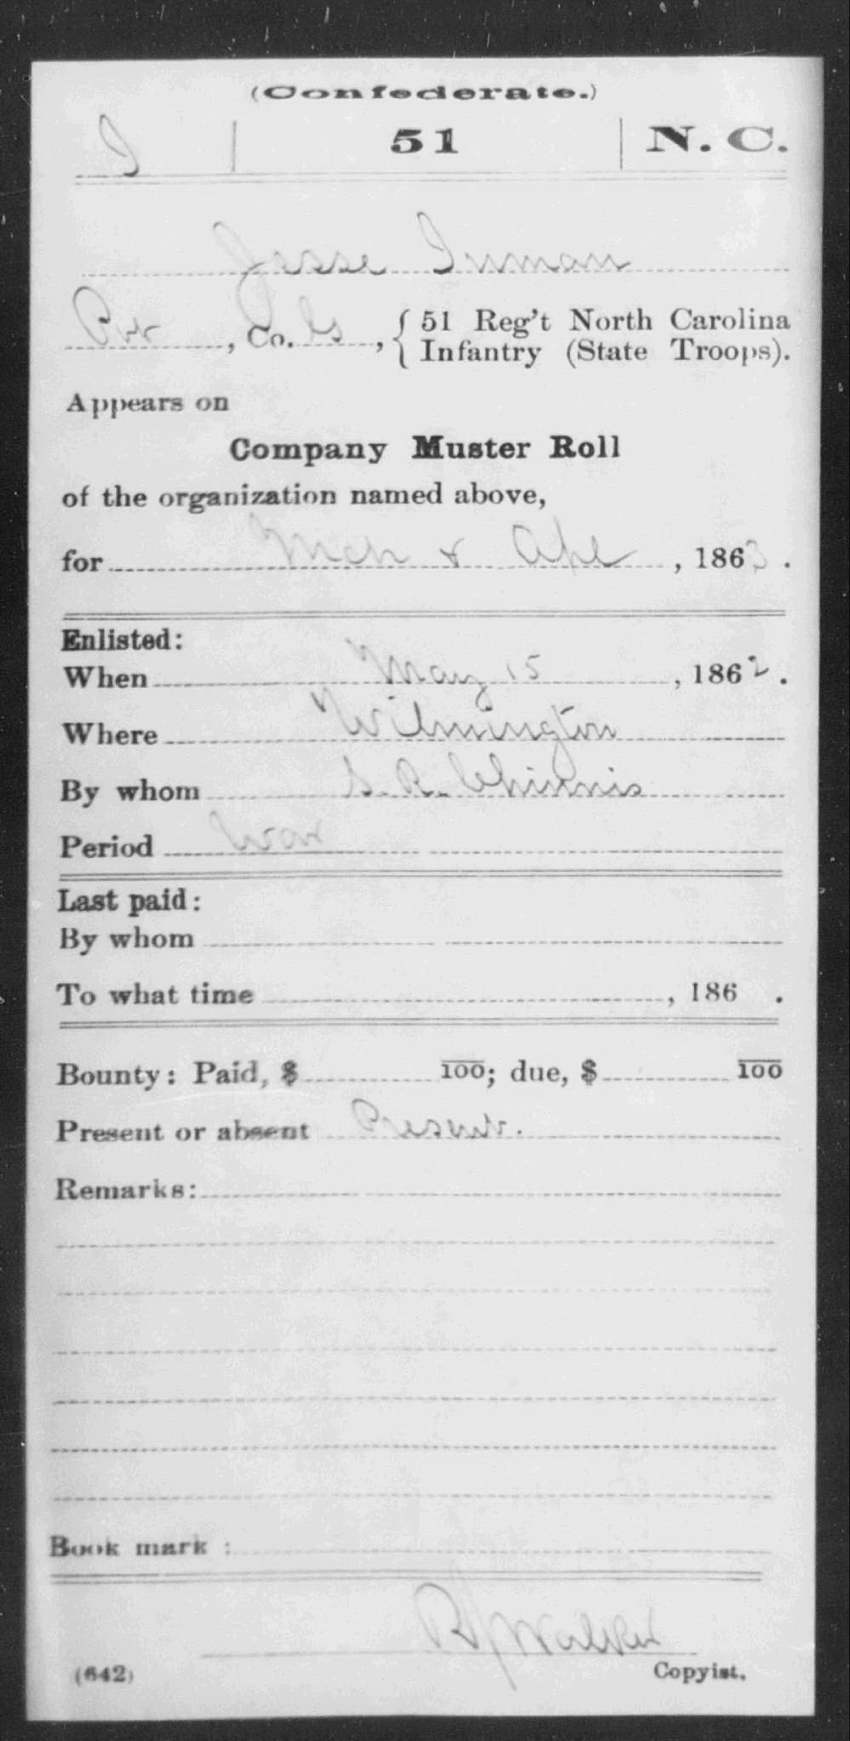 (Confederate.)
I | 51 | N. C.
Jesse Inman
Pvt, Co. G, { 51 Reg't North Carolina
Infantry (State Troops).
Appears on
Company Muster Roll
of the organization named above,
for Mch & Apl, 1863.
Enlisted:
When May 15, 1862.
Where Wilmington
By whom S. R. Chinnis
Period War
Last paid:
By whom
To what time , 186 .
Bounty: Paid, $ 100; due, $ 100
Present or absent Present.
Remarks:
Book mark :
Walker
(642) Copyist.